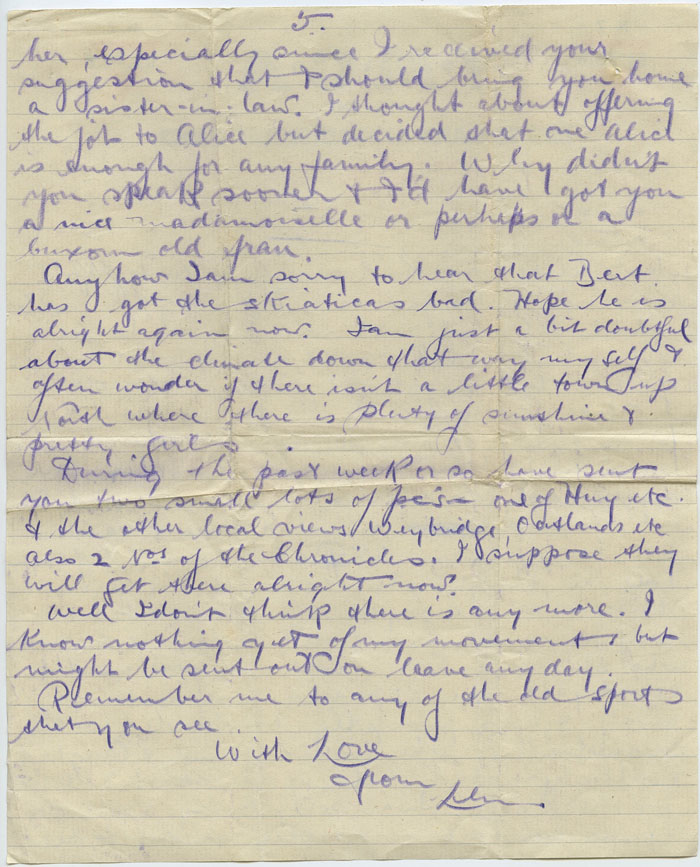 5.
her, especially since I received your
suggestion that I should bring you home
a sister-in-law. I thought about offering
the job to Alice but decided that one Alice
is enough for any family. Why didn't
you speak sooner & I'd have got you
a nice madamoiselle or perhaps a
buxom old frau.
Anyhow I am sorry to hear that Bert
has got the skiaticas bad. Hope he is
alright again now. I am just a bit doubtful
about the climate down that way myself &
often wonder if there isn't a little town up
North where there is plenty of sunshine &
pretty girls.
During the past week or so have sent
you two small lots of one of Huy etc.
& the other local views Weybridge, Oatlands etc
also 2 Nos of the Chronicles. I suppose they
will get there alright now.
Well I don't think there is any more. I
know nothing yet of my movements but
might be sent out on leave any day.
Remember me to any of the old sports
that you see.
With Love
from Len.